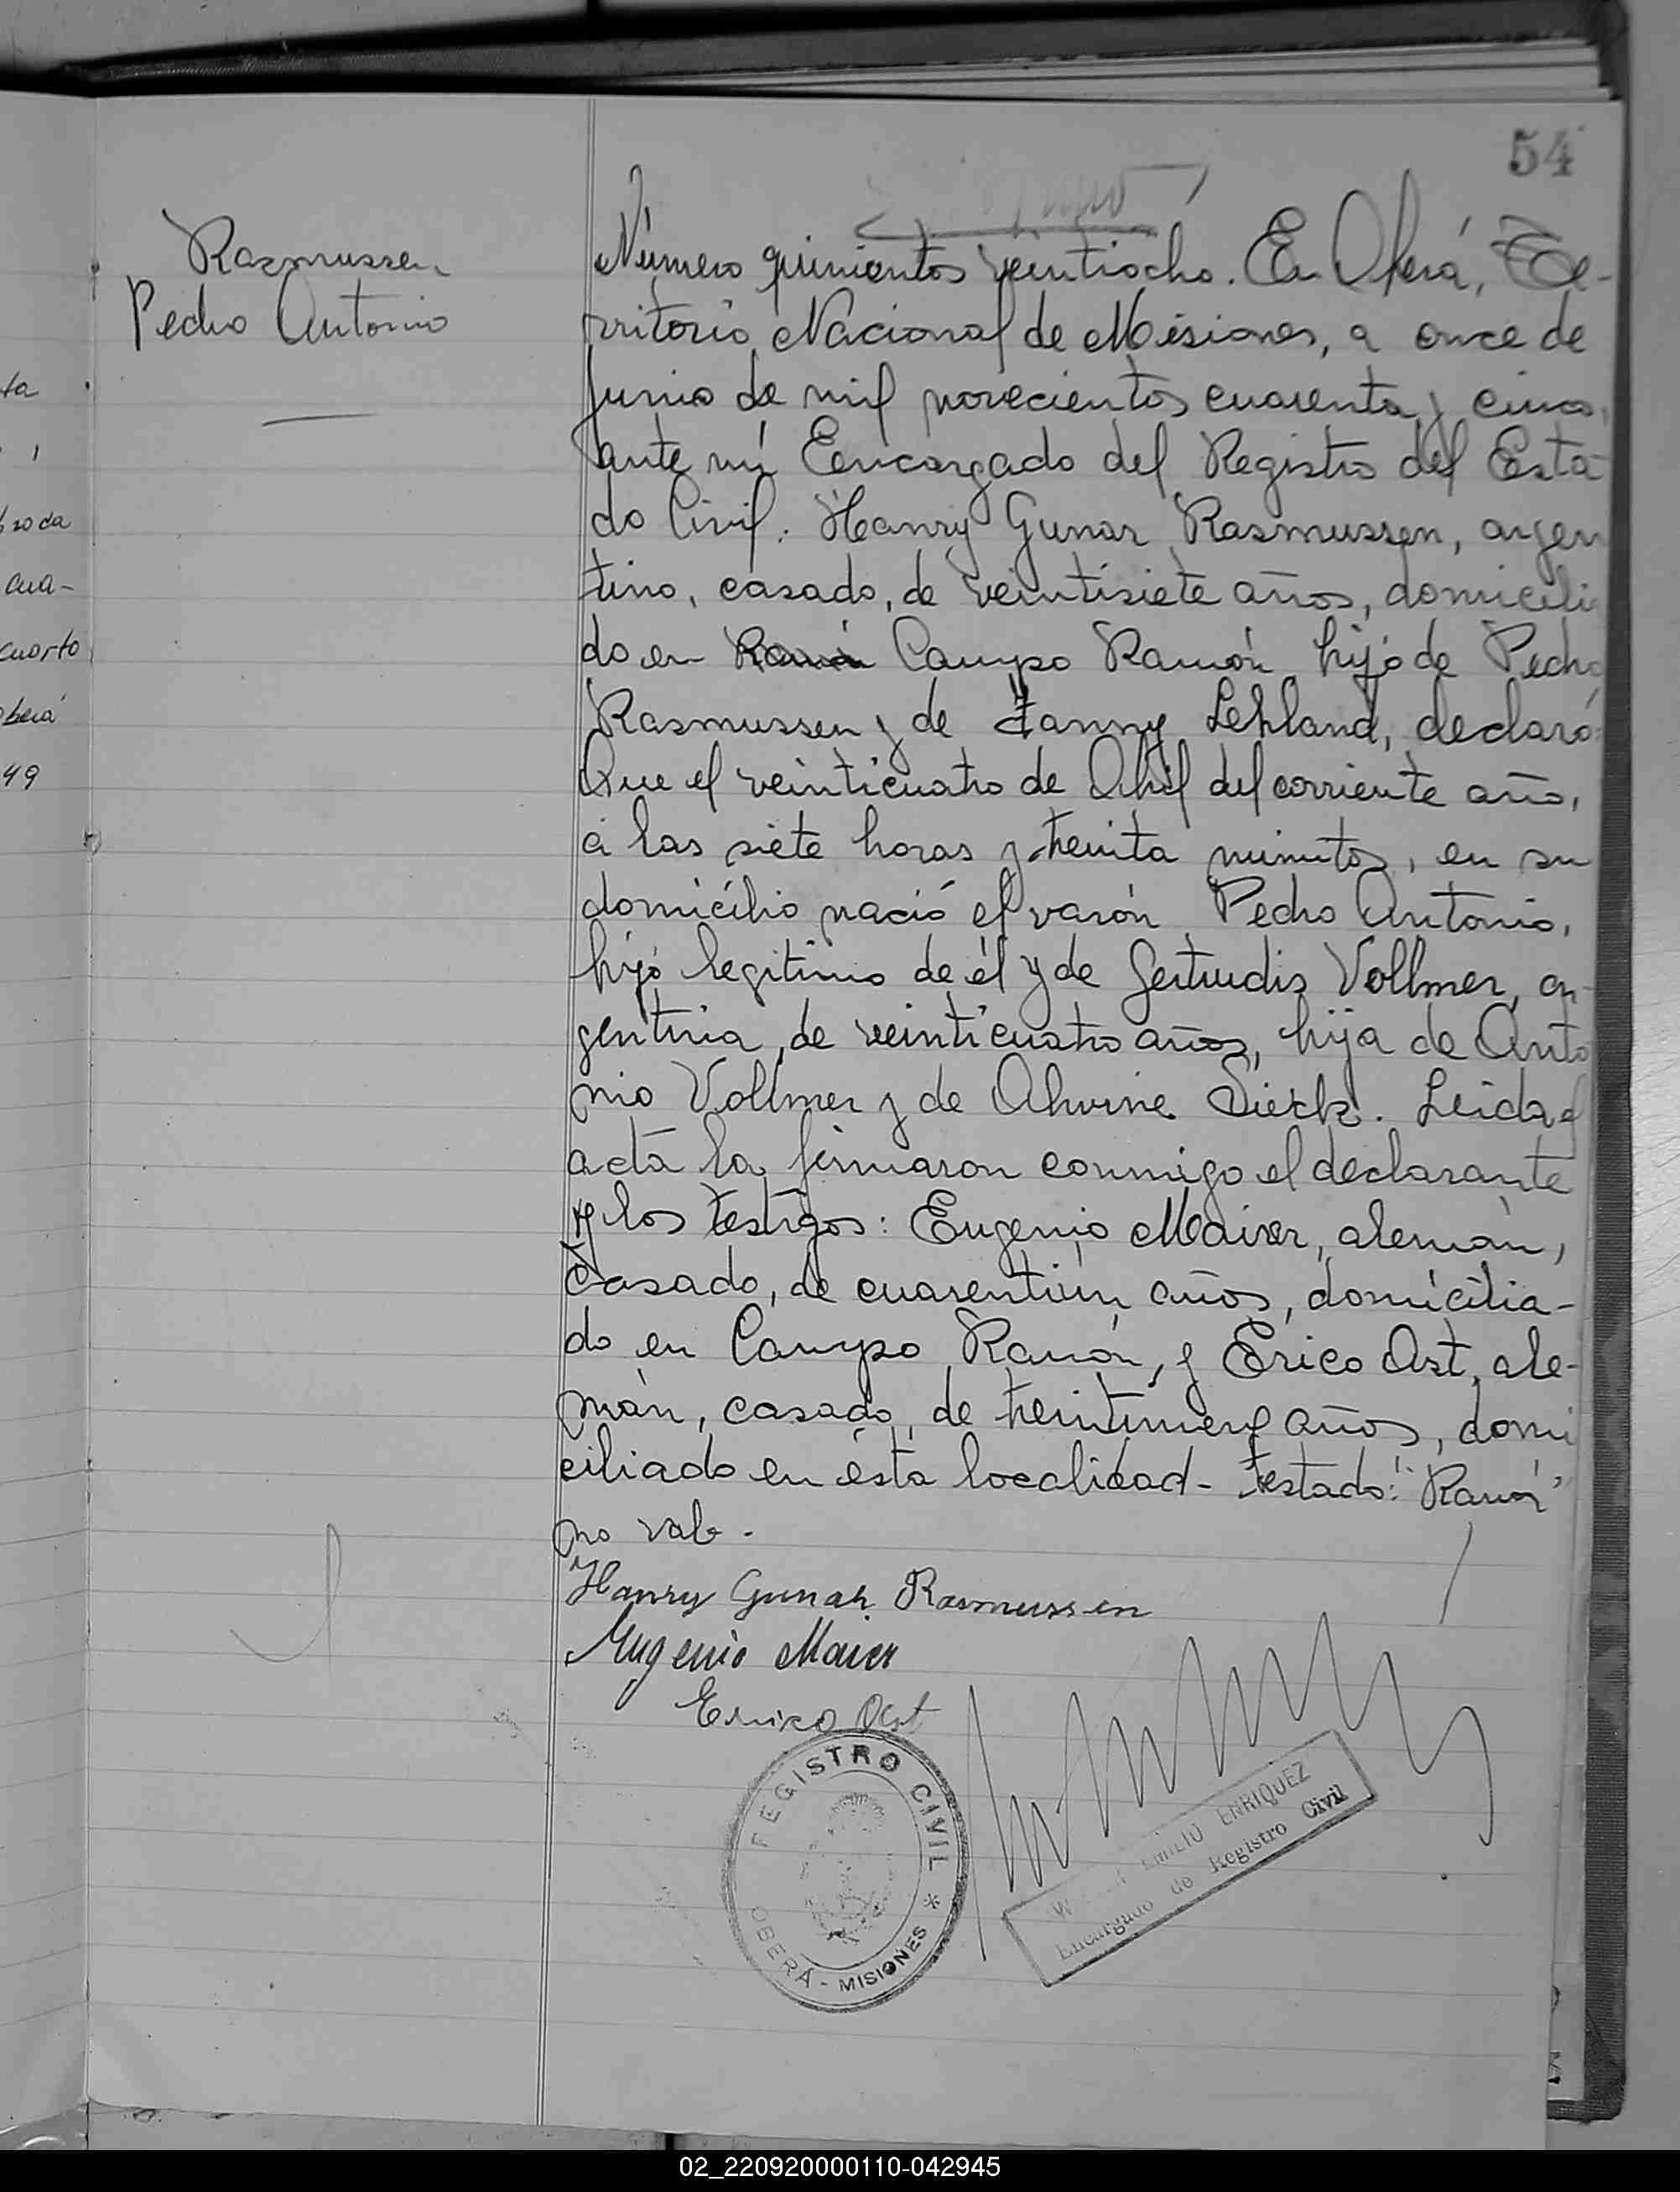 54
Rasmussen
Pedro Antonio
Número quinientos veintiocho. En Oberá, Te-
rritorio Nacional de Misiones, a once de
Junio de mil novecientos cuarenta y cinco,
ante mí Encargado del Registro del Esta-
do Civil: Hanry Gunar Rasmussen, argen
tino, casado, de veintisiete años, domicilia
do en Ramón Campo Ramón hijo de Pedro
Rasmussen y de Fanny Lehland, declaró:
Que el veinticuatro de Abril del corriente año,
a las siete horas y treinta minutos, en su
domicilio nació el varón Pedro Antonio,
hijo legitimo de él y de Gertrudis Vollmer, ar-
gentina, de veinticuatro años, hija de Anto
nio Vollmer y de Alwine Sierk. Leida el
acta la firmaron conmigo el declarante
y los testigos: Eugenio Maier, alemán,
casado, de cuarentiún años, domicilia-
do en Campo Ramón, y Erico Ost, ale-
mán, casado, de treintinueve años, domi
ciliado en ésta localidad- Testado: "Ramón"
no vale.
Hanry Gunar Rasmussen
Eugenio Maier
Erico Ost
REGISTRO CIVIL *
OBERÁ - MISIONES
EMILIO ENRIQUEZ
Encargado de Registro Civil
ta
cua-
cuarto
berá
49
02_220920000110-042945